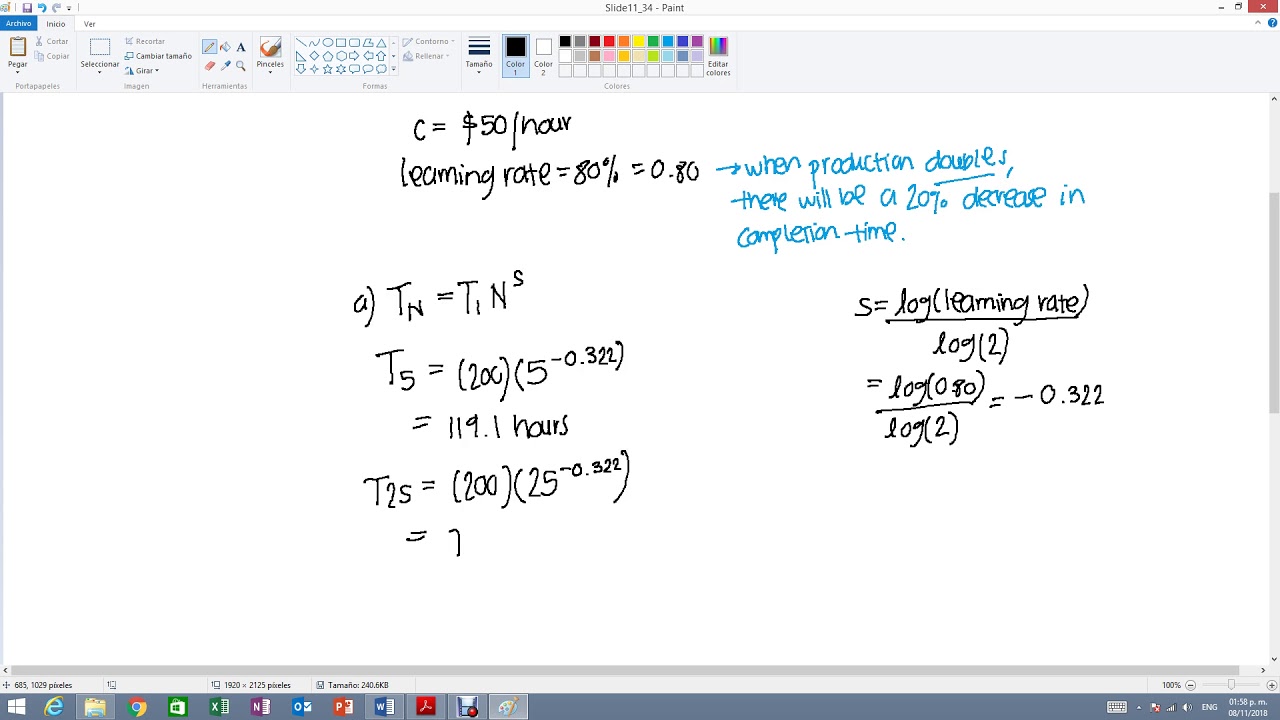 Slide11_34 - Paint
Archivo Inicio Ver
Pegar Cortar Copiar Portapapeles
Seleccionar Recortar Cambiar tamaño Girar Imagen
Herramientas
Pinceles
Contorno Rellenar Formas
Tamaño
Color 1 Color 2 Editar colores Colores
c = $50/hour
learning rate = 80% = 0.80 → when production doubles,
there will be a 20% decrease in
completion time.
a) T_N = T_1 N^s
s = log(learning rate) / log(2)
T_5 = (200)(5^-0.322)
= log(0.80) / log(2) = -0.322
= 119.1 hours
T_25 = (200)(25^-0.322)
= 7
685, 1029 píxeles 1920 × 2125 píxeles Tamaño: 240.6KB 100%
ENG 01:58 p. m.
08/11/2018